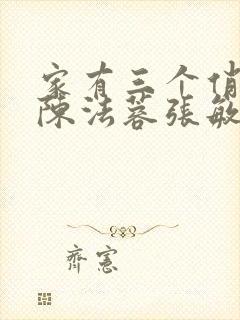 家有三个俏
陈法蓉张敏
齊憲